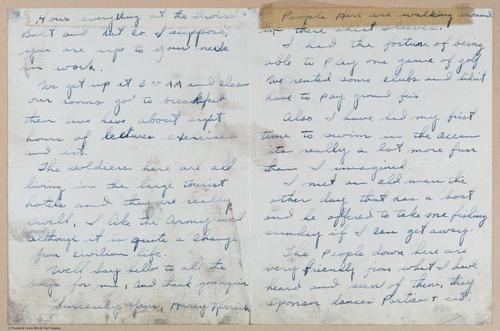 Hows everything at the Lewis
Bolt and Nut Co. I suppose
you are up to your neck
in work.
We get up at 5:00 AM and clean
our rooms go to breakfast
then we have about eight
hours of lectures exercises
and ect.
The soldiers here are all
living in the large tourist
hotels and they are really
swell, I like the Army well
although it is quite a change
from civilian life.
Well say hello to all the
boys for me, and thank you again
Sincerely Yours, Harry
People here are walking around
in there shirt sleeves.
I had the fortune of being
able to play one game of golf
We rented some clubs and didn't
have to pay ground fees.
Also I have had my first
time to swim in the ocean
its really a lot more fun
than I imagined.
I met an old man the
other day that has a boat
and he offered to take me fishing
sunday if I can get away.
The People down here are
very friendly from what I have
heard and seen of them, they
sponsor dances Parties + ect.